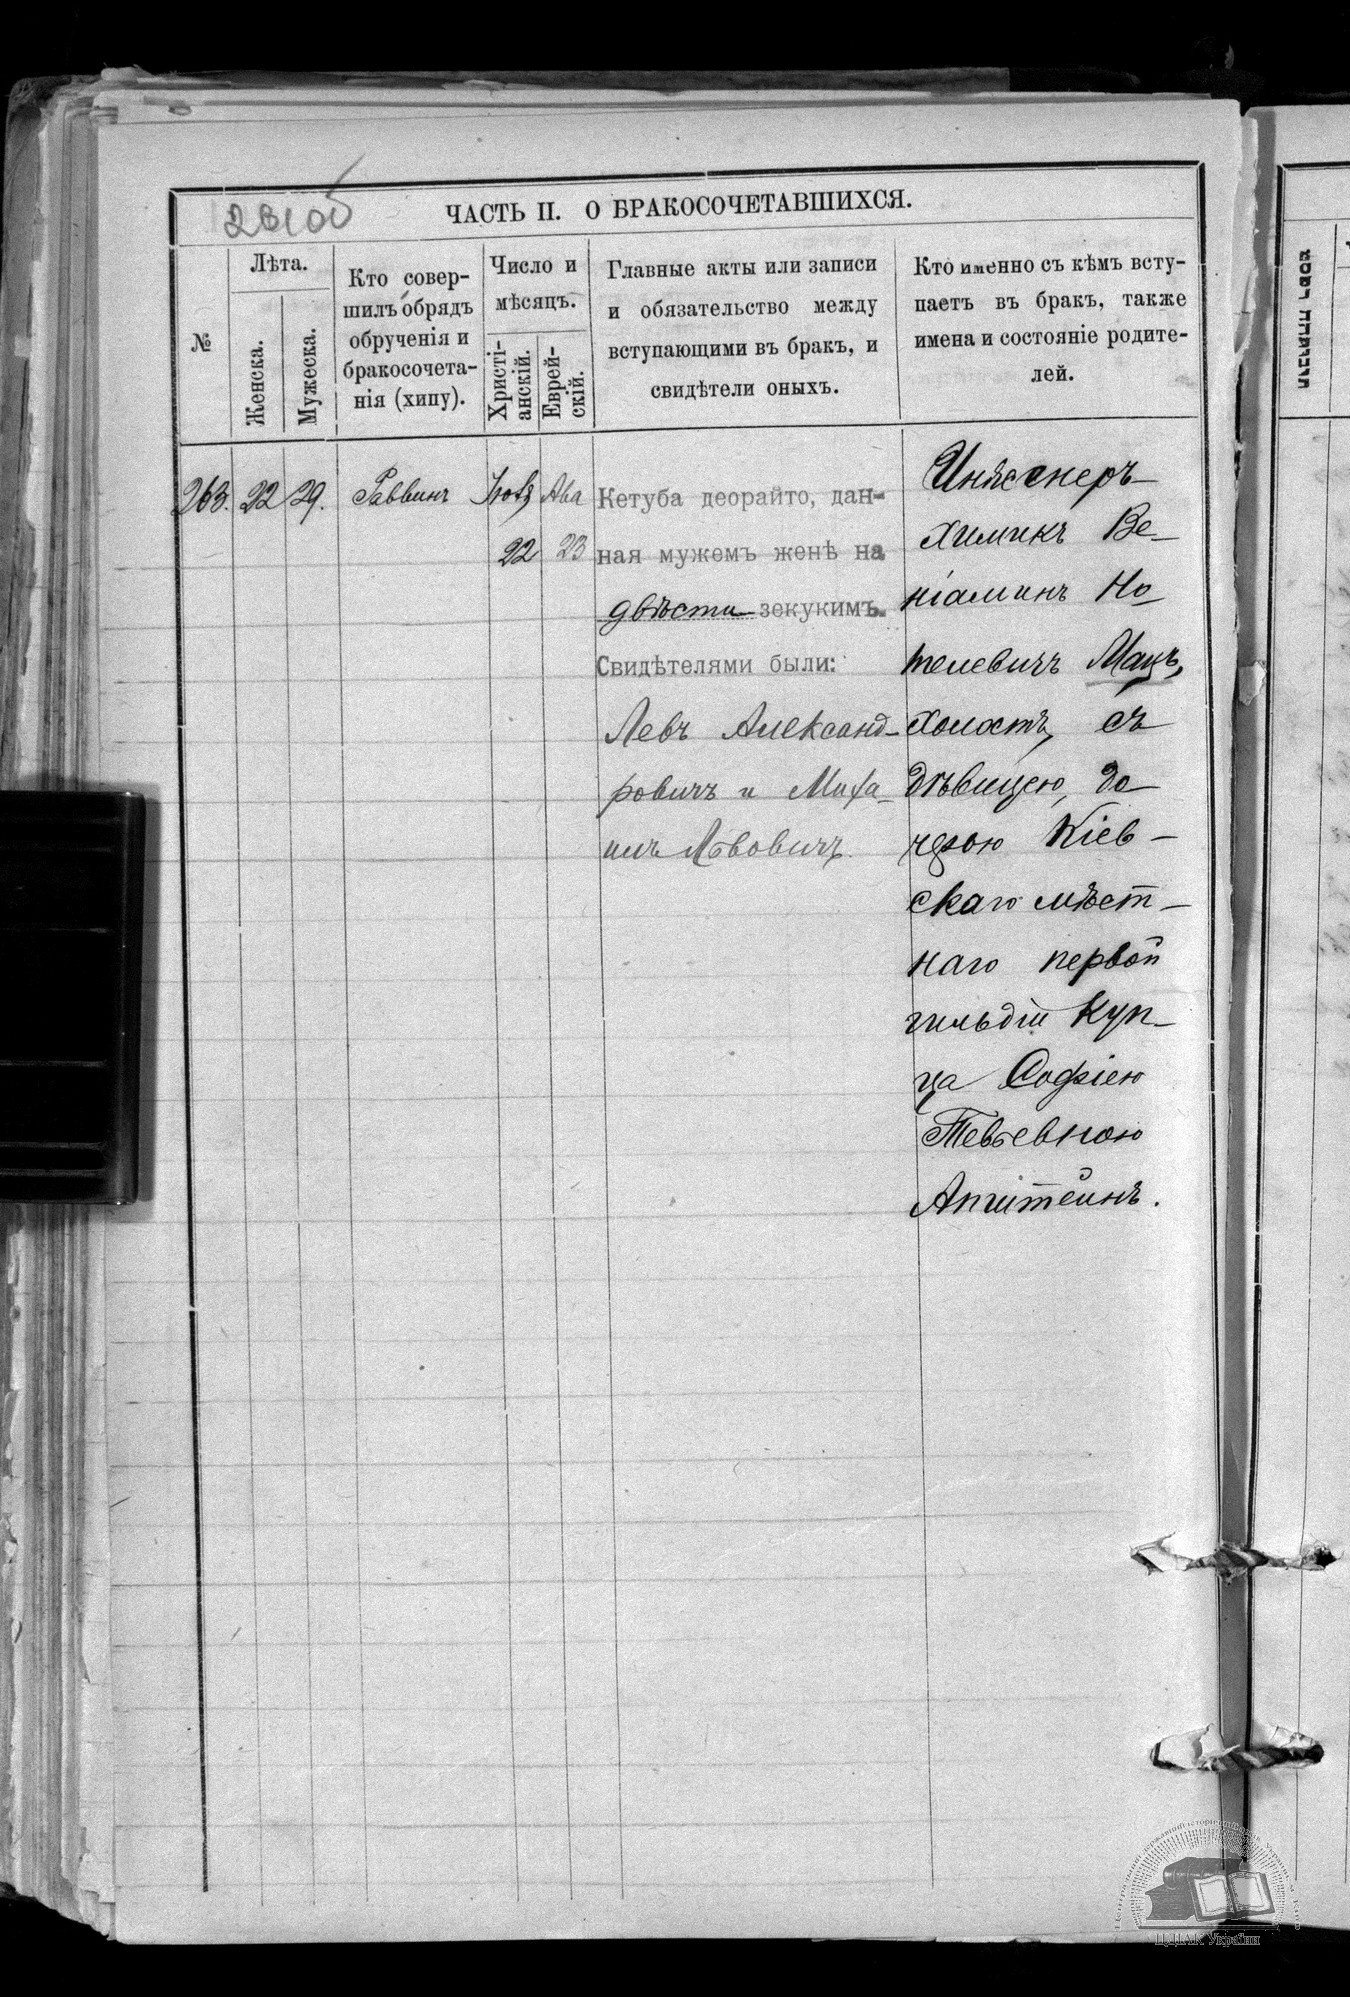 231об
ЧАСТЬ II. О БРАКОСОЧЕТАВШИХСЯ.
№
Лѣта.
Женска.
Мужеска.
Кто совер-
шилъ обрядъ
обрученія и
бракосочета-
нія (хипу).
Число и
мѣсяцъ.
Христі-
анскій.
Еврей-
скій.
Главные акты или записи
и обязательство между
вступающими въ бракъ, и
свидѣтели оныхъ.
Кто именно съ кѣмъ всту-
паетъ въ бракъ, также
имена и состояніе родите-
лей.
263. 22 29. Раввинъ Ава
22 23
Кетуба деорайто, дан-
ная мужемъ женѣ на
двѣсти зекукимъ.
Свидѣтелями были:
Левъ Александ-
ровичъ и Миха-
илъ Львовичъ.
Инженеръ-
химикъ Ве-
ніаминъ Но-
телевичъ Мацъ,
холостъ, съ
дѣвицею, до-
черью Кіев-
скаго мѣст-
наго первой
гильдіи Куп-
ца Софіею
Тевьевною
Апштейнъ.
ЦДІАК України